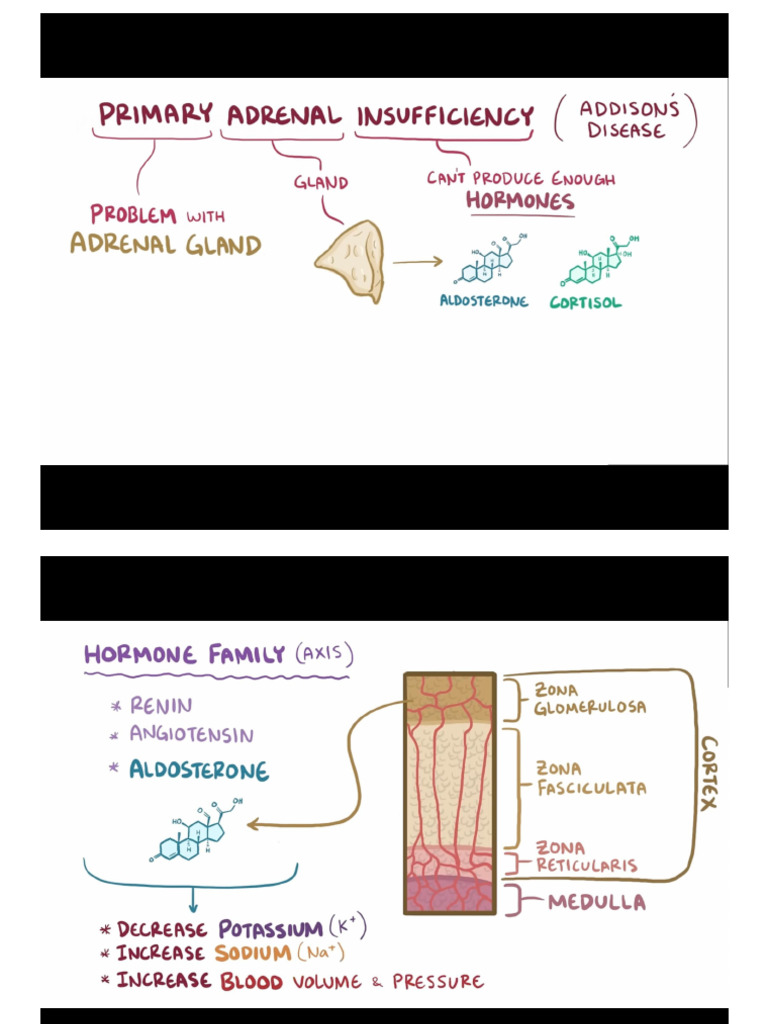 PRIMARY ADRENAL INSUFFICIENCY (ADDISON'S DISEASE)
GLAND
CAN'T PRODUCE ENOUGH
HORMONES
PROBLEM WITH
ADRENAL GLAND
O
HO
O
O
OH
ALDOSTERONE
O
HO
O
OH
OH
CORTISOL
HORMONE FAMILY (AXIS)
* RENIN
* ANGIOTENSIN
* ALDOSTERONE
O
HO
O
O
OH
H
H
H
ZONA
GLOMERULOSA
ZONA
FASCICULATA
ZONA
RETICULARIS
CORTEX
MEDULLA
* DECREASE POTASSIUM (K+)
* INCREASE SODIUM (Na+)
* INCREASE BLOOD VOLUME & PRESSURE